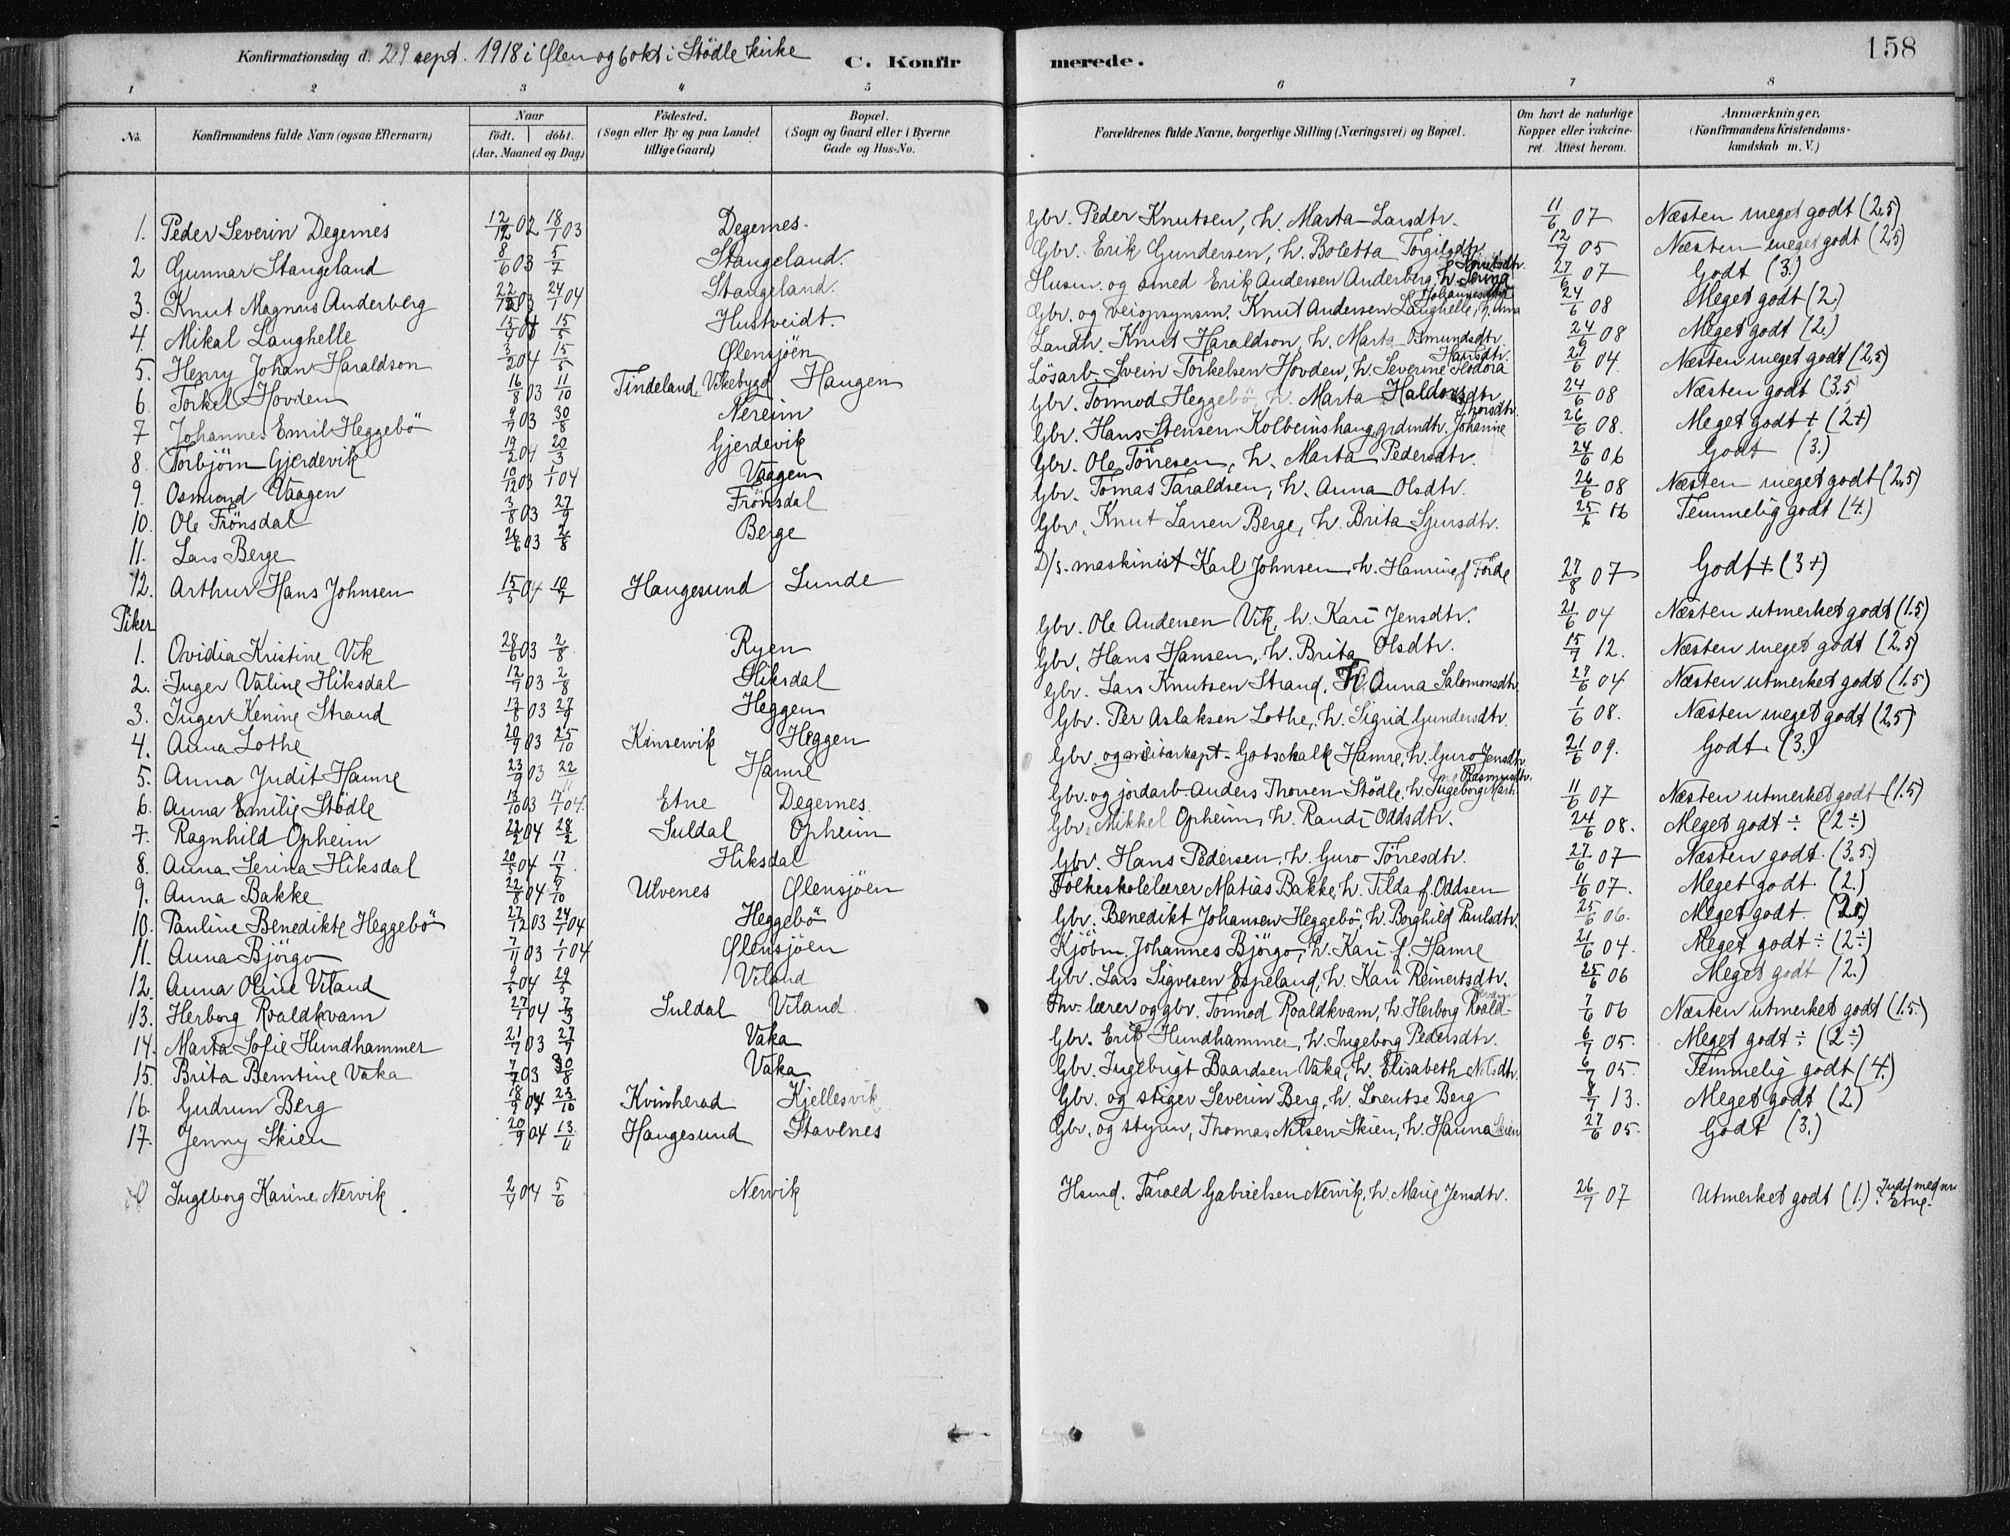 Konfirmationsdag d. 29 sept. 1918 i Ølen og 6 okt i Stödle kirke C. Konfirmerede. 158
1 2 3 4 5 6 7 8
No. Konfirmandens fulde Navn (ogsaa Efternavn) Naar födt. döbt. (Aar, Maaned og Dag) Födested. (Sogn eller By og paa Landet tillige Gaard) Bopæl. (Sogn og Gaard eller i Byerne Gade og Hus-No. Forældrenes fulde Navne, borgerlige Stilling (Næringsvei) og Bopæl. Om havt de naturlige Kopper eller vakcineret. Attest herom. Anmærkninger. (Konfirmandens Kristendomskundskab m. V.)
1. Peder Severin Degernes 12/12 02 18/1 03 Degernes. Gbr. Peder Knutsen, h. Marta Larsdtr. 11/6 07 Næsten meget godt (2,5)
2 Gunnar Stangeland 8/6 03 5/7 Stangeland. Gbr. Erik Gundersen, h. Boletta Torgilsdtr. 12/7 05 Næsten meget godt (2,5)
3. Knut Magnus Anderberg 22/12 03 24/1 04 Stangeland. Husm. og smed Erik Andersen Anderberg, h. Serina Knutsdtr. 27/6 07 Godt (3.)
4. Mikal Langhelle 15/4 04 15/5 Hustveidt. Gbr. og veiopsynsm. Knut Andersen Langhelle, h. Anna Johannesdtr 24/6 08 Meget godt (2.)
5. Henry Johan Haraldson 3/2 04 15/5 Ølensjöen Landh. Knut Haraldson, h. Marta Osmundsdtr. 24/6 08 Meget godt (2.)
6. Torkel Hovden 16/8 03 11/10 Tindeland, Vikebygd Haugen Lösarb. Svein Torkelsen Hovden, h. Severine Teodora Hansdtr. 21/6 04 Næsten meget godt (2,5)
7 Johannes Emil Heggebö 9/7 03 30/8 Nereim Gbr. Tormod Heggebö, h. Marta Haldorsdtr 24/6 08 Næsten godt (3,5
8. Torbjörn Gjerdevik 19/2 04 20/3 Gjerdevik Gbr. Hans Stensen Kolbeinshaug, Johanne 26/6 08. Meget godt + (2+)
9. Osmund Vaagen 10/12 03 1/1 04 Vaagen Gbr. Ole Törresen, h. Marta Pedersdtr. 24/6 06 Godt (3.)
10. Ole Frönsdal 3/8 03 27/9 Frönsdal Gbr. Tomas Taraldsen, h. Anna Olsdtr. 26/6 08 Næsten meget godt (2,5)
11. Lars Berge 26/6 03 2/8 Berge Gbr. Knut Larsen Berge, h. Brita Sjursdtr. 25/6 06 Temmelig godt (4.)
12. Arthur Hans Johnsen 15/5 04 10/7 Haugesund Sunde D/s. maskinist Karl Johnsen, h. Hanrine f Förde 27/8 07 Godt + (3+)
Piker
1. Ovidia Kristine Vik 28/6 03 2/8 Ryen Gbr. Ole Andersen Vik, h. Kari Jensdtr. 21/6 04 Næsten utmerket godt (1.5)
2. Inger Valine Hiksdal 12/7 03 2/8 Hiksdal Gbr. Hans Hansen, h. Brita Olsdtr. 15/7 12. Næsten meget godt (2,5)
3. Inger Kenine Strand 13/8 03 27/9 Heggen Gbr. Lars Knutsen Strand, H. Anna Salomonsdtr. 27/6 04 Næsten utmerket godt (1.5)
4. Anna Lothe 20/9 03 25/10 Kinservik Heggen Gbr. Per Aslaksen Lothe, h. Sigrid Gundersdtr. 1/6 08. Næsten meget godt (2,5)
5. Anna Judit Hamre 23/9 03 22/11 Hamre Gbr. og militærkapt. Gotschalk Hamre, h. Guro Jensdtr 21/6 09. Godt (3.)
6. Anna Emilie Stödle 13/10 03 17/1 04. Etne Degernes Gbr. og jordarb. Anders Thorsen Stödle, h. Ingeborg Marta Rasmusdtr. 11/6 07 Næsten utmerket godt (1.5)
7. Ragnhild Opheim 22/2 04 28/2 Suldal Opheim Gbr. Mikkel Opheim, h. Randi Oddsdtr. 24/6 08. Meget godt ÷ (2÷)
8. Anna Serina Hiksdal 20/5 04 17/7 Hiksdal Gbr. Hans Pedersen, h. Guro Törresdtr. 27/6 07 Næsten godt. (3,5.)
9. Anna Bakke 22/8 04 9/10 Utvenes Ølensjöen Folkeskolelærer Matias Bakke, h. Tilda f. Oddsen 11/6 07. Meget godt. (2.)
10. Pauline Benedikte Heggebö 27/12 03 24/1 04 Heggebö Gbr. Benedikt Johansen Heggebö, h. Borghild Paulsdtr. 25/6 06. Meget godt. (2.)
11. Anna Björgo 7/11 03 1/1 04 Ølensjöen Kjöbm. Johannes Björgo, h. Kari f. Hamre 21/6 04. Meget godt ÷ (2÷)
12. Anna Oline Viland 9/5 04 29/5 Viland Gbr. Lars Sigvesen Espeland, h. Kari Reinertsdtr. 25/6 06 Meget godt (2.)
13. Herborg Roaldkvam 27/1 04 7/3 Suldal Viland Fhv. lærer og gbr. Tormod Roaldkvam, h. Herborg Roaldkvam 7/6 06 Næsten utmerket godt (1.5.)
14. Marta Sofie Hundhammer 21/7 03 27/7 Vaka Gbr. Erik Hundhammer, h. Ingeborg Pedersdtr. 6/7 05. Meget godt ÷ (2÷)
15. Brita Berntine Vaka 7/7 03 30/8 Vaka Gbr. Ingebrigt Baardsen Vaka, h. Elisabeth Nilsdtr. 6/7 05. Temmelig godt (4.)
16. Gudrun Berg 18/9 04 23/10 Kvinherad Kjellesvik Gbr. og stiger Severin Berg, h. Lorentse Berg 8/7 13. Meget godt (2)
17. Jenny Skien 20/9 04 13/11 Haugesund Stavenes Gbr. og styrm. Thomas Nilsen Skien, h. Hanna Skien 27/6 05. Godt (3.)
Ingeborg Karine Nervik 2/4 04 5/6 Nervik Husmd. Tarald Gabrielsen Nervik, h. Marie Jensdtr. 26/7 07 Utmerket godt (1.) Indt med nr i Etne.